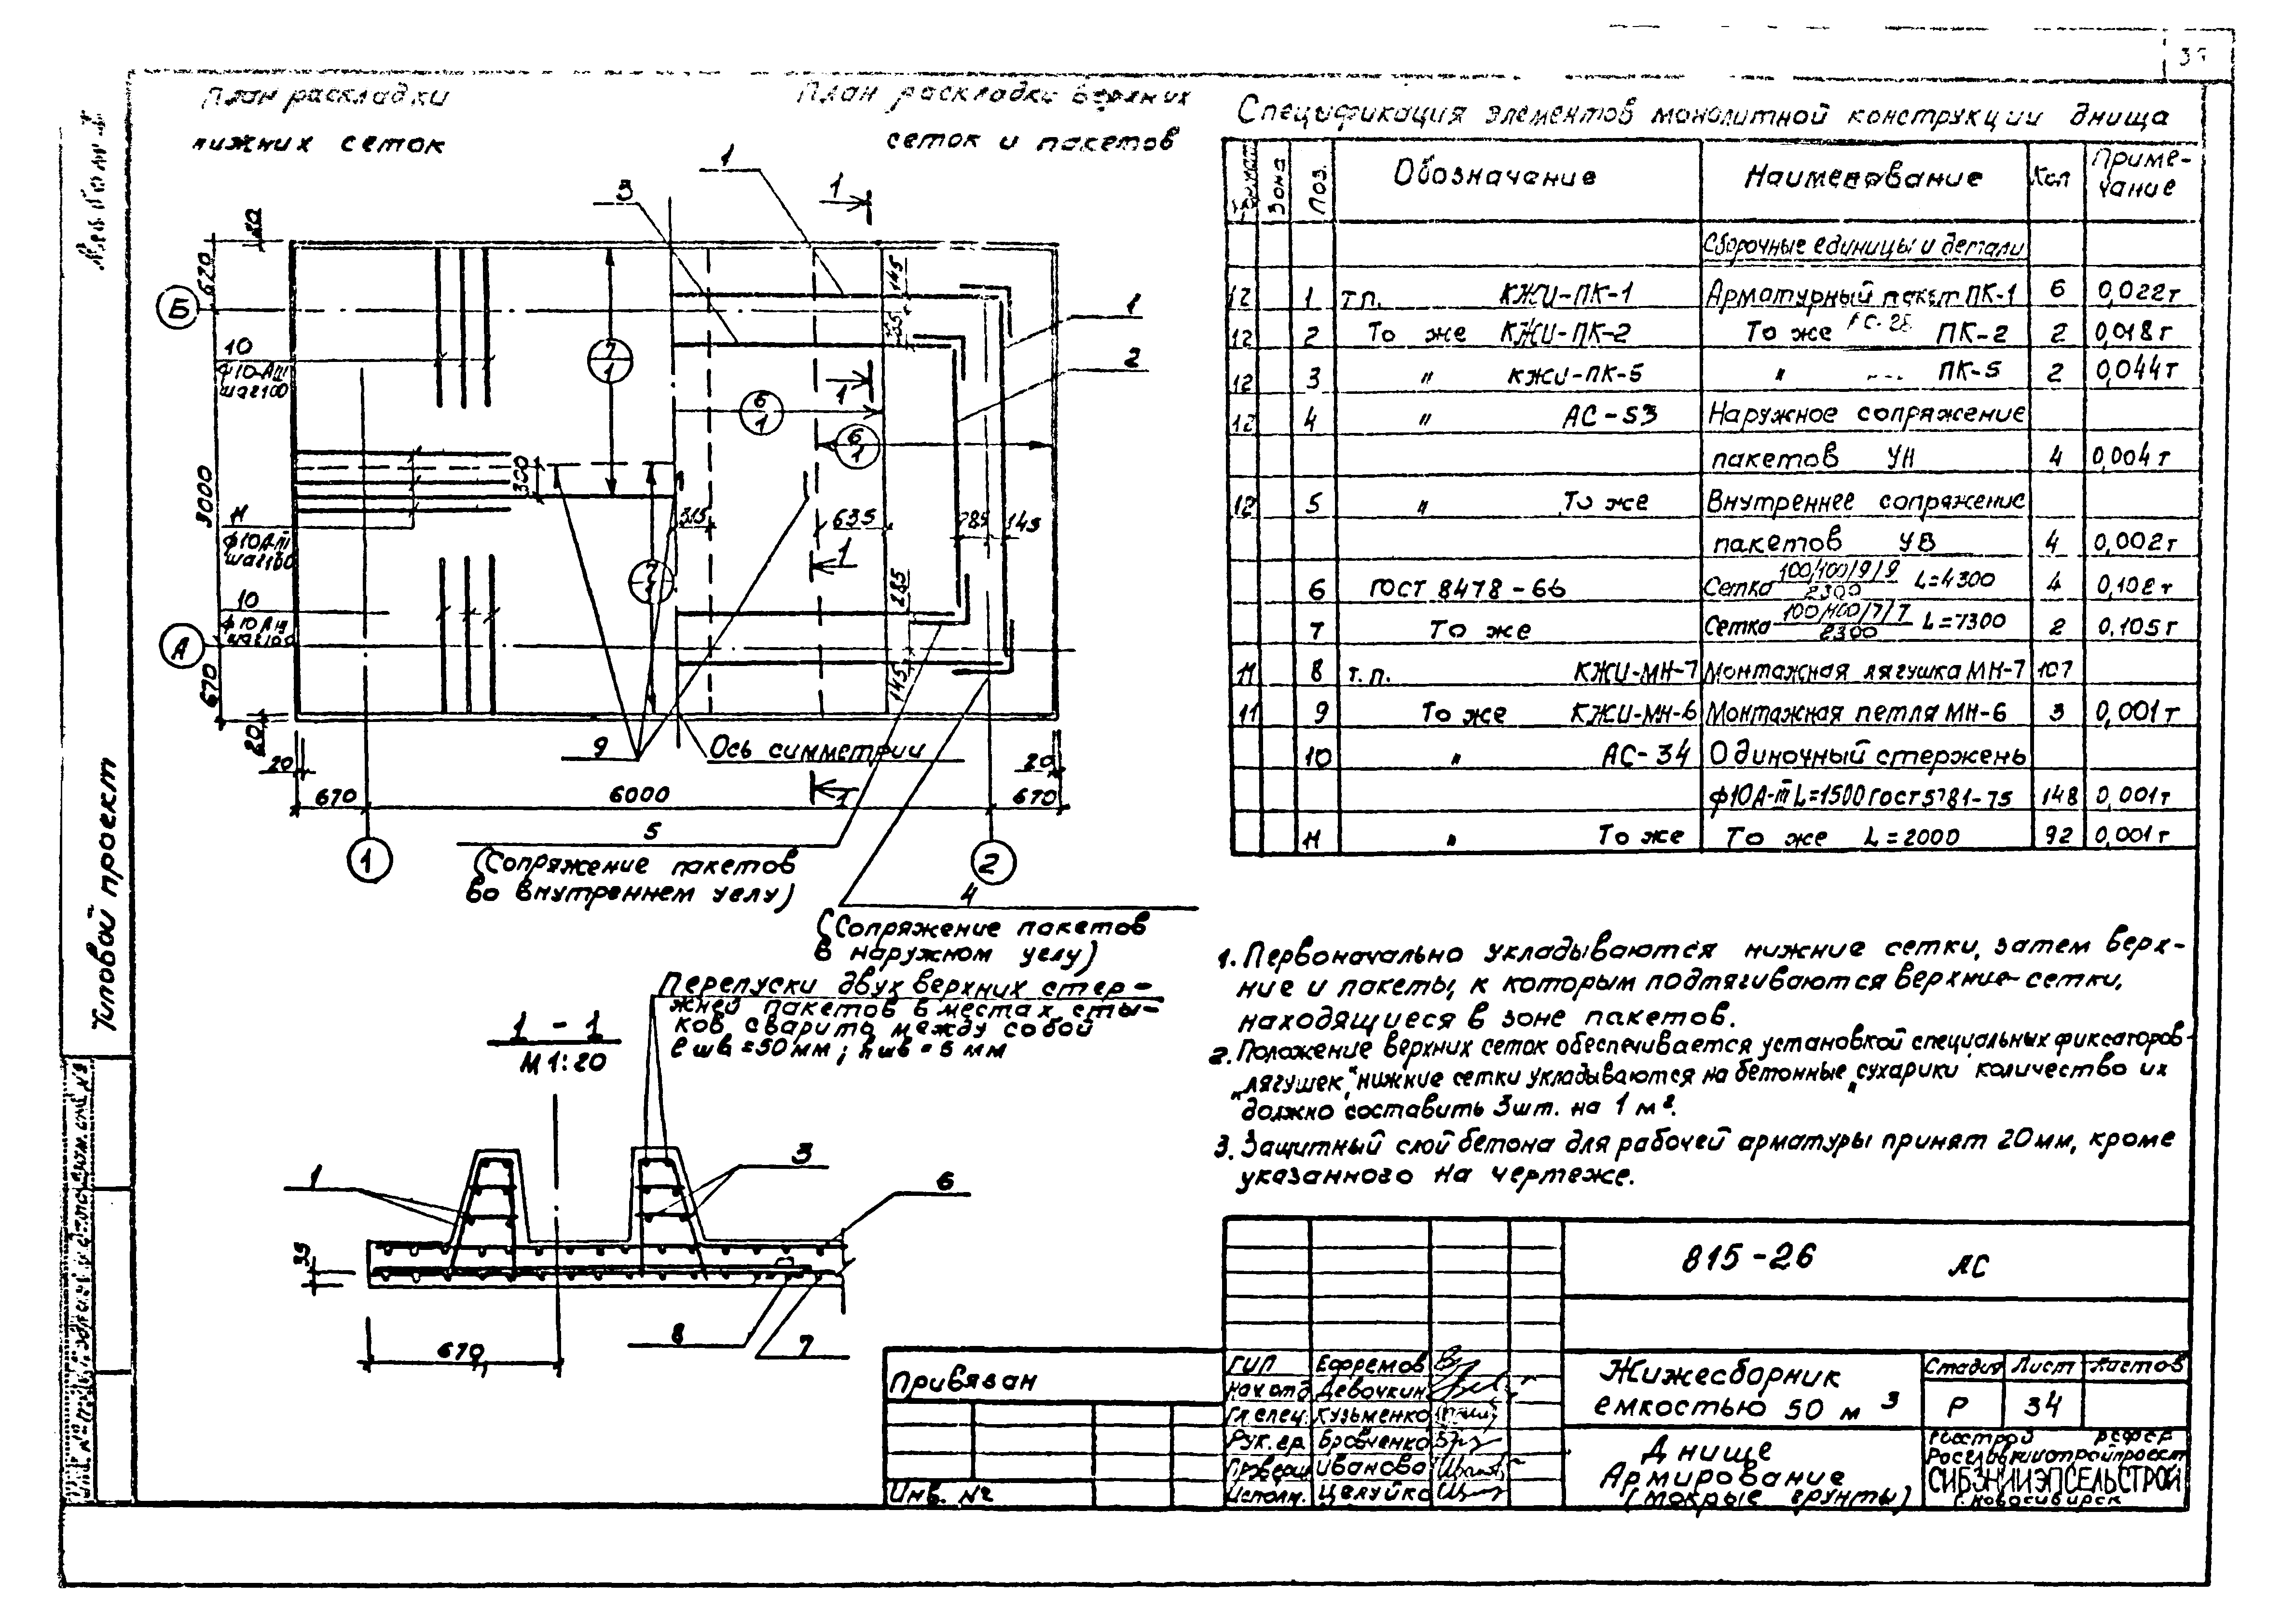 План раскладки
нижних сеток
План раскладки верхних
сеток и пакетов
Ось симметрии
5
(Сопряжение пакетов
во внутреннем углу)
4
(Сопряжение пакетов
в наружном углу)
Перепуски двух верхних стер-
жней пакетов в местах сты-
ков сварить между собой
ℓшв = 50 мм; hшв = 5 мм
1 - 1
М 1:20
1
3
6
8
7
35
670
1
3
1
1
1
2
Б
А
1
2
10
ф10-АIII
шаг 100
11
ф10А-III
шаг 100
10
ф10АIII
шаг 100
620
3000
670
20
20
670
6000
670
20
9
300
315
635
285
145
145
285
145
7/1
6/1
6/1
7/1
Спецификация элементов монолитной конструкции днища
Формат Зона Поз. Обозначение Наименование Кол Приме-
чание
Сборочные единицы и детали
12 1 т.п. КЖИ-ПК-1 Арматурный пакет ПК-1 6 0,022т
12 2 То же КЖИ-ПК-2 То же ПК-2 2 0,018т
12 3 " КЖИ-ПК-5 " ПК-5 2 0,044т
12 4 " АС-53 Наружное сопряжение
пакетов УН 4 0,004т
12 5 " То же Внутреннее сопряжение
пакетов УВ 4 0,002т
6 ГОСТ 8478-66 Сетка 100/100/9/9 / 2300 L=4300 4 0,108т
7 То же Сетка 100/100/7/7 / 2300 L=7300 2 0,105т
11 8 т.п. КЖИ-МН-7 Монтажная лягушка МН-7 107
11 9 То же КЖИ-МН-6 Монтажная петля МН-6 3 0,001т
10 " АС-34 Одиночный стержень
ф10А-III L=1500 ГОСТ 5781-75 148 0,001т
11 " То же То же L=2000 92 0,001т
1. Первоначально укладываются нижние сетки, затем верх-
ние и пакеты, к которым подтягиваются верхние сетки,
находящиеся в зоне пакетов.
2. Положение верхних сеток обеспечивается установкой специальных фиксаторов-
„лягушек", нижние сетки укладываются на бетонные „сухарики количество их
должно составить 3шт. на 1 м².
3. Защитный слой бетона для рабочей арматуры принят 20мм, кроме
указанного на чертеже.
815-26 АС
Жижесборник
емкостью 50 м³
Стадия Лист Листов
Р 34
Днище
Армирование
(мокрые грунты)
Госстрой РСФСР
СИБЗНИИЭПСЕЛЬСТРОЙ
г. Новосибирск
Привязан
Инв. №
ГИП Ефремов
Нач.отд Девочкин
Гл.спец. Кузьменко
Рук.гр. Бровченко
Провер. Иванова
Исполн. Целуйко
Типовой проект
Альбом I